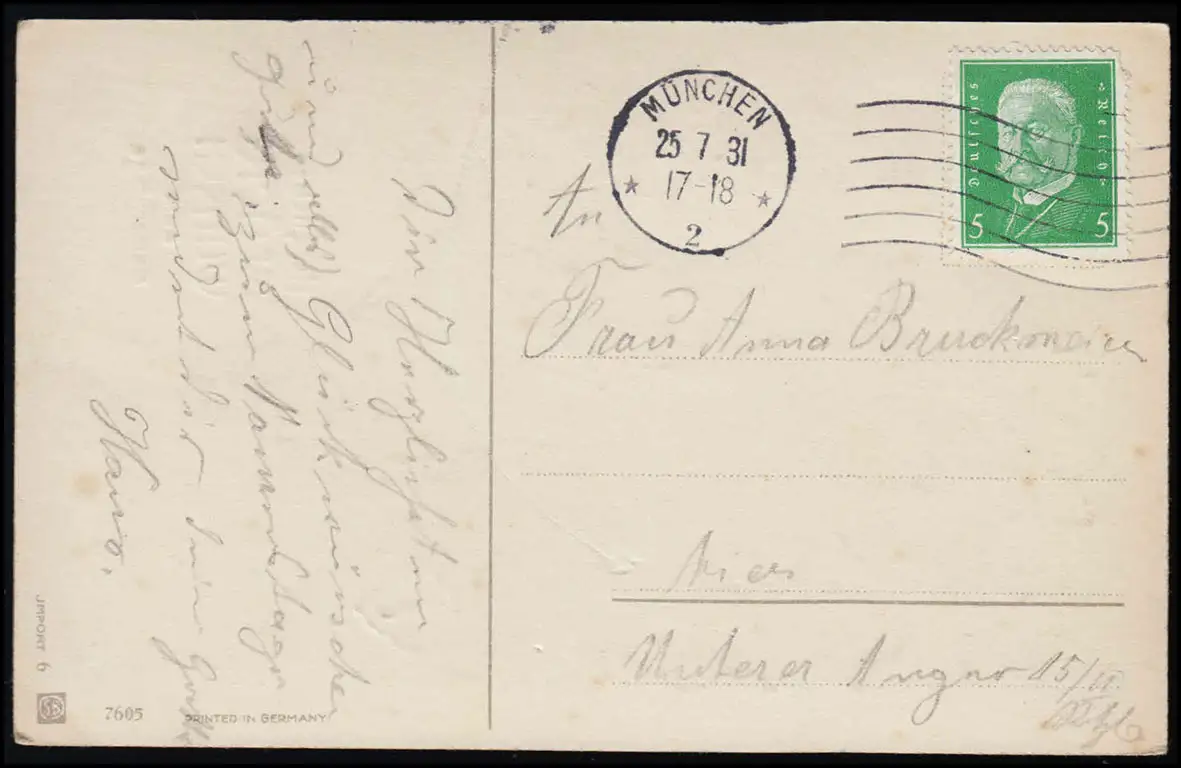 Die Herzlichsten
Glückwünsche
und alles
gute zum Namenstage
sendet dir deine
Hans.
JMPORT 6
7605
PRINTED IN GERMANY
MÜNCHEN
25 7 31
17-18
2
Deutsches Reich
5 5
An
Frau Anna Bruckmeier
hier
Unterer Anger 15/II